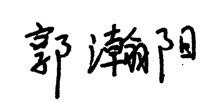 郭瀚阳